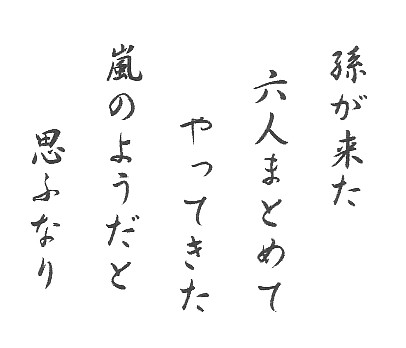 孫が来た
六人まとめて
やってきた
嵐のようだと
思ふなり